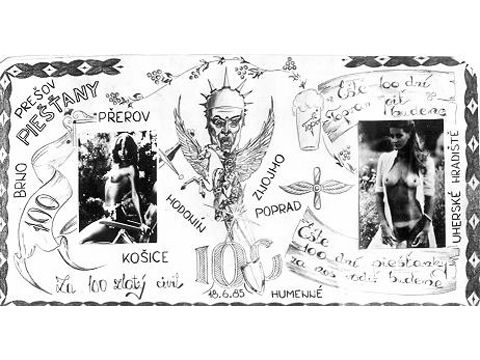 PREŠOV
PIEŠŤANY
PŘEROV
BRNO
100
KOŠICE
Za 100 zlatý civil
HODONÍN
ZNOJMO
POPRAD
100
18.6.85
HUMENNÉ
Ešte 100 dní
pit budeme
UHERSKÉ HRADIŠTĚ
Ešte
100 dní piešťanky
za nos vodiť budeme